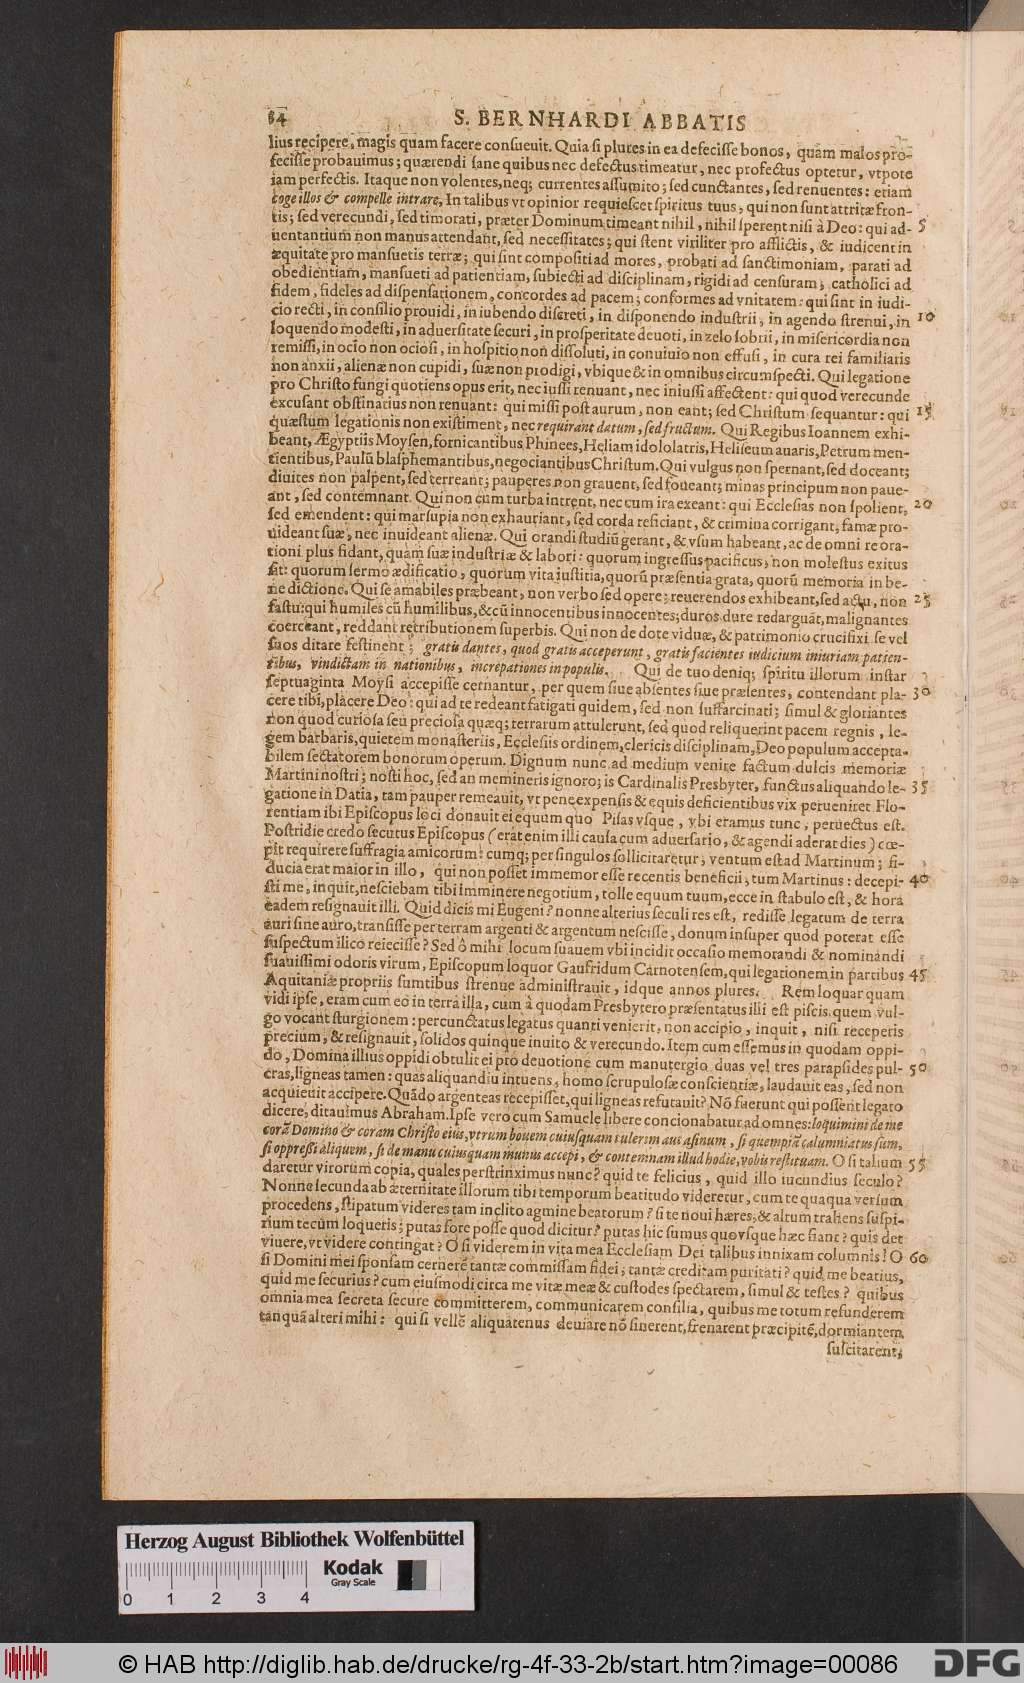 84 S. BERNHARDI ABBATIS
lius recipere, magis quam facere consueuit. Quia si plures in ea defecisse bonos, quam malos pro-
fecisse probauimus; quærendi sane quibus nec defectus timeatur, nec profectus optetur, vtpote
iam perfectis. Itaque non volentes, neq; currentes assumito; sed cunctantes, sed renuentes: etiam
coge illos & compelle intrare, In talibus vt opinior requiescet spiritus tuus; qui non sunt attritæ fron-
tis; sed verecundi, sed timorati, præter Dominum timeant nihil, nihil sperent nisi à Deo: qui ad- 5
uentantium non manus attendant, sed necessitates; qui stent viriliter pro afflictis, & iudicent in
æquitate pro mansuetis terræ; qui sint compositi ad mores, probati ad sanctimoniam, parati ad
obedientiam, mansueti ad patientiam, subiecti ad disciplinam, rigidi ad censuram; catholici ad
fidem, fideles ad dispensationem, concordes ad pacem; conformes ad vnitatem: qui sint in iudi-
cio recti, in consilio prouidi, in iubendo discreti, in disponendo industrii, in agendo strenui, in 10
loquendo modesti, in aduersitate securi, in prosperitate deuoti, in zelo sobrii, in misericordia non
remissi, in ocio non ociosi, in hospitio non dissoluti, in conuiuio non effusi, in cura rei familiaris
non anxii, alienæ non cupidi, suæ non prodigi, vbique & in omnibus circumspecti. Qui legatione
pro Christo fungi quotiens opus erit, nec iussi renuant, nec iniussi affectent: qui quod verecunde
excusant obstinatius non renuant: qui missi post aurum, non eant; sed Christum sequantur: qui 15
quæstum legationis non existiment, nec requirant datum, sed fructum. Qui Regibus Ioannem exhi-
beant, Ægyptiis Moysen, fornicantibus Phinees, Heliam idololatris, Heliseum auaris, Petrum men-
tientibus, Paulũ blasphemantibus, negociantibus Christum. Qui vulgus non spernant, sed doceant;
diuites non palpent, sed terreant; pauperes non grauent, sed foueant; minas principum non paue-
ant, sed contemnant. Qui non cum turba intrent, nec cum ira exeant: qui Ecclesias non spolient, 20
sed emendent: qui marsupia non exhauriant, sed corda reficiant, & crimina corrigant, famæ pro-
uideant suæ, nec inuideant alienæ. Qui orandi studiũ gerant, & vsum habeant, ac de omni re ora-
tioni plus fidant, quam suæ industriæ & labori: quorum ingressus pacificus, non molestus exitus
sit: quorum sermo ædificatio, quorum vita iustitia, quorũ præsentia grata, quorũ memoria in be-
nedictione. Qui se amabiles præbeant, non verbo sed opere; reuerendos exhibeant, sed actu, non 25
fastu: qui humiles cũ humilibus, & cũ innocentibus innocentes; duros dure redarguãt, malignantes
coerceant, reddant retributionem superbis. Qui non de dote viduæ, & patrimonio crucifixi se vel
suos ditare festinent; gratis dantes, quod gratis acceperunt, gratis facientes iudicium iniuriam patien-
tibus, vindictam in nationibus, increpationes in populis. Qui de tuo deniq; spiritu illorum instar
septuaginta Moysi accepisse cernantur, per quem siue absentes siue præsentes, contendant pla- 30
cere tibi, placere Deo: qui ad te redeant fatigati quidem, sed non suffarcinati; simul & gloriantes
non quod curiosa seu preciosa quæq; terrarum attulerunt, sed quod reliquerint pacem regnis, le-
gem barbaris, quietem monasteriis, Ecclesiis ordinem, clericis disciplinam, Deo populum accepta-
bilem sectatorem bonorum operum. Dignum nunc ad medium venire factum dulcis memoriæ
Martini nostri; nosti hoc, sed an memineris ignoro; is Cardinalis Presbyter, functus aliquando le- 35
gatione in Datia, tam pauper remeauit, vt pene expensis & equis deficientibus vix perueniret Flo-
rentiam ibi Episcopus loci donauit ei equum quo Pisas vsque, vbi eramus tunc, peruectus est.
Postridie credo secutus Episcopus (erat enim illi causa cum aduersario, & agendi aderat dies) cœ-
pit requirere suffragia amicorum: cumq; per singulos sollicitaretur, ventum est ad Martinum; fi-
ducia erat maior in illo, qui non posset immemor esse recentis beneficii, tum Martinus: decepi- 40
sti me, inquit, nesciebam tibi imminere negotium, tolle equum tuum, ecce in stabulo est, & hora
eadem resignauit illi. Quid dicis mi Eugeni? nonne alterius seculi res est, redisse legatum de terra
auri sine auro, transisse per terram argenti & argentum nescisse, donum insuper quod poterat esse
suspectum ilico reiecisse? Sed ô mihi locum suauem vbi incidit occasio memorandi & nominandi
suauissimi odoris virum, Episcopum loquor Gaufridum Carnotensem, qui legationem in partibus 45
Aquitaniæ propriis sumtibus strenue administrauit, idque annos plures. Rem loquar quam
vidi ipse, eram cum eo in terra illa, cum à quodam Presbytero præsentatus illi est piscis quem vul-
go vocant sturgionem: percunctatus legatus quanti venierit, non accipio, inquit, nisi receperis
precium, & resignauit, solidos quinque inuito & verecundo. Item cum essemus in quodam oppi-
do, Domina illius oppidi obtulit ei pro deuotione cum manutergio duas vel tres parapsides pul- 50
cras, ligneas tamen: quas aliquandiu intuens, homo scrupulosæ conscientiæ, laudauit eas, sed non
acquieuit accipere. Quãdo argenteas recepisset, qui ligneas refutauit? Nõ fuerunt qui possent legato
dicere, ditauimus Abraham. Ipse vero cum Samuele libere concionabatur ad omnes: loquimini de me
corã Domino & coram Christo eius, vtrum bouem cuiusquam tulerim aut asinum, si quempiã calumniatus sum,
si oppressi aliquem, si de manu cuiusquam munus accepi, & contemnam illud hodie, vobis restituam. O si talium 55
daretur virorum copia, quales perstrinximus nunc? quid te felicius, quid illo iucundius seculo?
Nonne secunda ab æternitate illorum tibi temporum beatitudo videretur, cum te quaqua versum
procedens, stipatum videres tam inclito agmine beatorum? si te noui hæres, & altum trahens suspi-
rium tecum loqueris; putas fore posse quod dicitur? putas hic sumus quovsque hæc fiant? quis det
viuere, vt videre contingat? O si viderem in vita mea Ecclesiam Dei talibus innixam columnis! O 60
si Domini mei sponsam cernerẽ tantæ commissam fidei; tantæ creditam puritati? quid me beatius,
quid me securius? cum eiusmodi circa me vitæ meæ & custodes spectarem, simul & testes? quibus
omnia mea secreta secure committerem, communicarem consilia, quibus me totum refunderem
tanquã alteri mihi: qui si vellẽ aliquatenus deuiare nõ sinerent, frenarent præcipitẽ, dormiantem
suscitarent;
Herzog August Bibliothek Wolfenbüttel
Kodak
Gray Scale
0 1 2 3 4
© HAB http://diglib.hab.de/drucke/rg-4f-33-2b/start.htm?image=00086
DFG